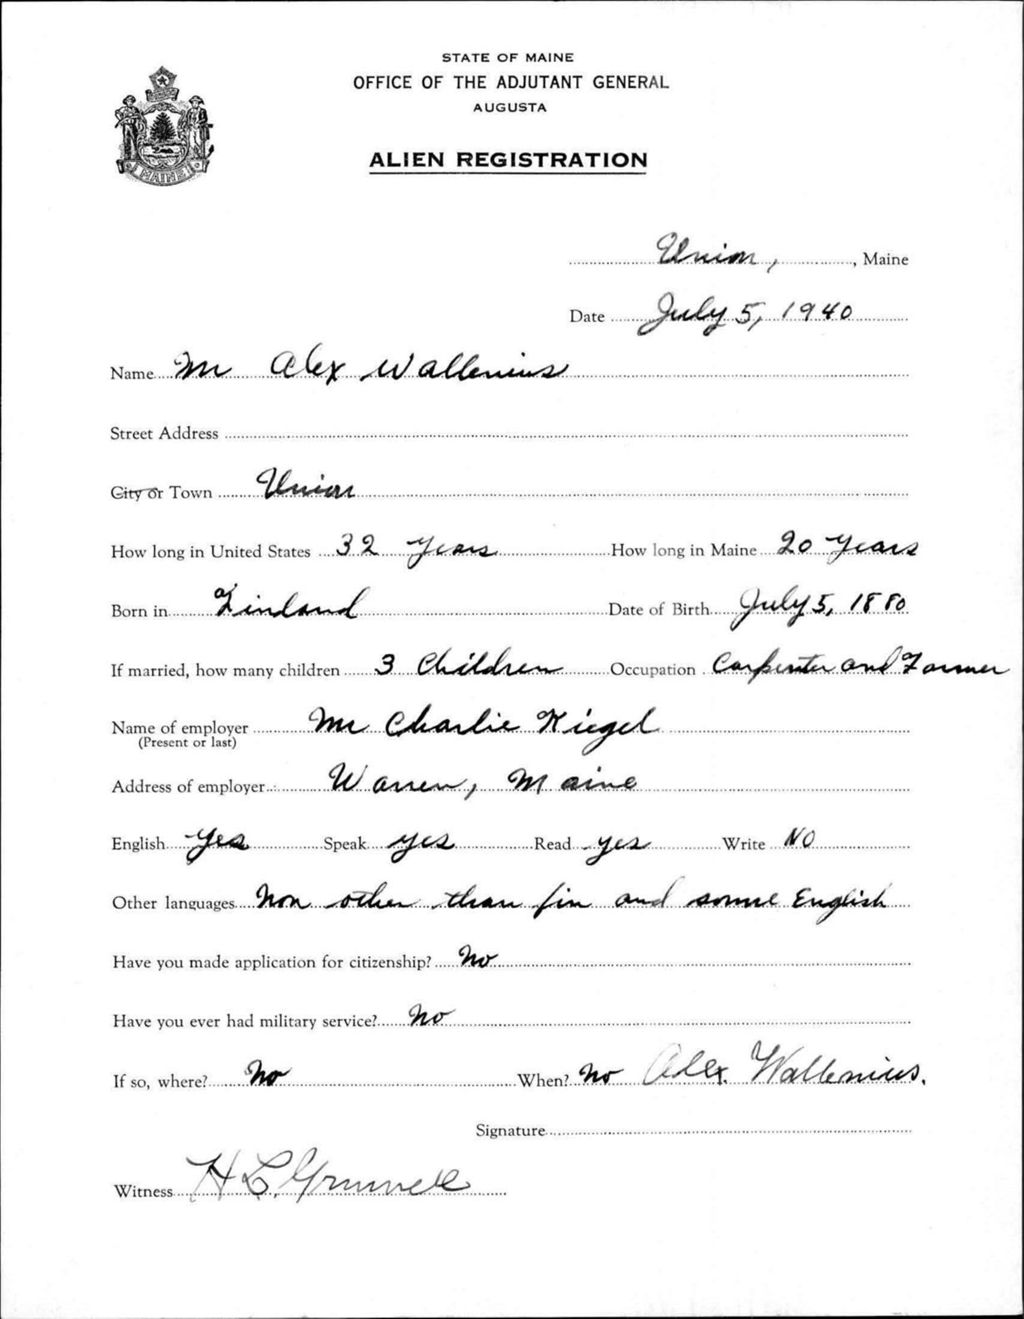 STATE OF MAINE
OFFICE OF THE ADJUTANT GENERAL
AUGUSTA
ALIEN REGISTRATION
MAINE
Union, , Maine
Date July 5, 1940
Name Mr Alex Wallenius
Street Address
City or Town Union
How long in United States 32 Years How long in Maine 20 Years
Born in Finland Date of Birth July 5, 1880
If married, how many children 3 Children Occupation Carpenter and Farmer
Name of employer Mr Charlie Kiegel
(Present or last)
Address of employer Warren, Maine
English Yes Speak yes Read yes Write NO
Other languages Non other than fin and some English
Have you made application for citizenship? No
Have you ever had military service? No
If so, where? No When? No Alex Wallenius.
Signature
Witness H L Grinnell